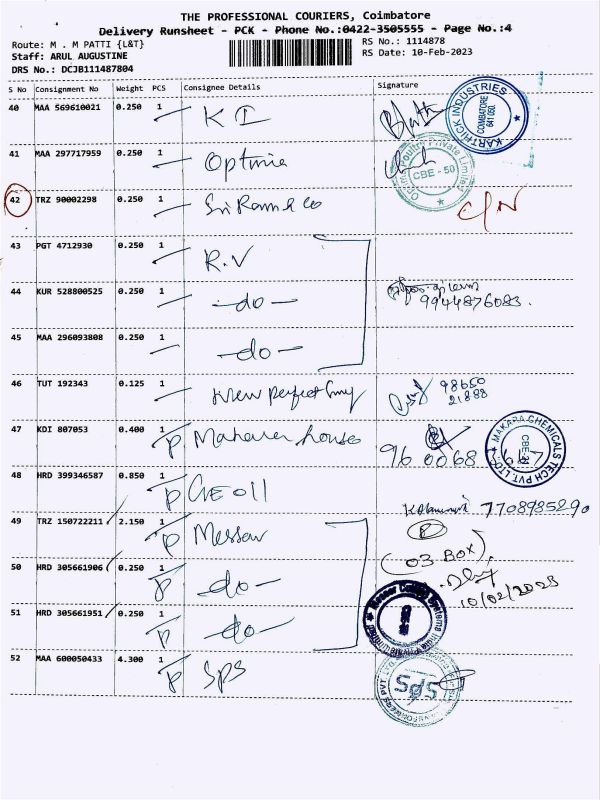 THE PROFESSIONAL COURIERS, Coimbatore
Delivery Runsheet - PCK - Phone No.:0422-3505555 - Page No.:4
Route: M . M PATTI {L&T}
RS No.: 1114878
Staff: ARUL AUGUSTINE
RS Date: 10-Feb-2023
DRS No.: DCJB111487804
S No Consignment No Weight PCS Consignee Details Signature
40 MAA 569610021 0.250 1 K I
KARTHICK INDUSTRIES COIMBATORE 641 050
41 MAA 297717959 0.250 1
Private Limited CBE - 50
42 TRZ 90002298 0.250 1 Sri Ram & Co
43 PGT 4712930 0.250 1 R.V
44 KUR 528800525 0.250 1 -do-
9944876083.
45 MAA 296093808 0.250 1 -do-
46 TUT 192343 0.125 1 New perfect
98650
21888
47 KDI 807053 0.400 1 P house
MAKARA CHEMICALS TECH PVT. LTD. CBE-21
48 HRD 399346587 0.850 1 P
7708985290
49 TRZ 150722211 2.150 1 P Messer
(03 BOX)
50 HRD 305661906 0.250 1 P -do-
10/02/2023
51 HRD 305661951 0.250 1 P -do-
Messer
52 MAA 600050433 4.300 1 P SPS
SPS